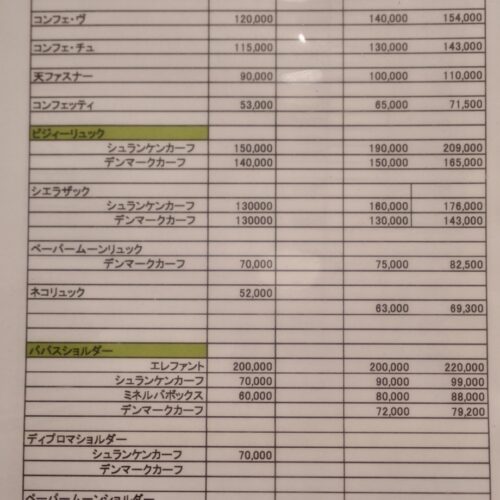 コンフェ・ヴ 120,000 140,000 154,000
コンフェ・チュ 115,000 130,000 143,000
天ファスナー 90,000 100,000 110,000
コンフェッティ 53,000 65,000 71,500
ビジィーリュック
シュランケンカーフ 150,000 190,000 209,000
デンマークカーフ 140,000 150,000 165,000
シエラザック
シュランケンカーフ 130000 160,000 176,000
デンマークカーフ 130000 130,000 143,000
ペーパームーンリュック
デンマークカーフ 70,000 75,000 82,500
ネコリュック 52,000
63,000 69,300
パパスショルダー
エレファント 200,000 200,000 220,000
シュランケンカーフ 70,000 90,000 99,000
ミネルバボックス 60,000 80,000 88,000
デンマークカーフ 72,000 79,200
ディプロマショルダー
シュランケンカーフ 70,000
デンマークカーフ
ペーパームーンショルダー